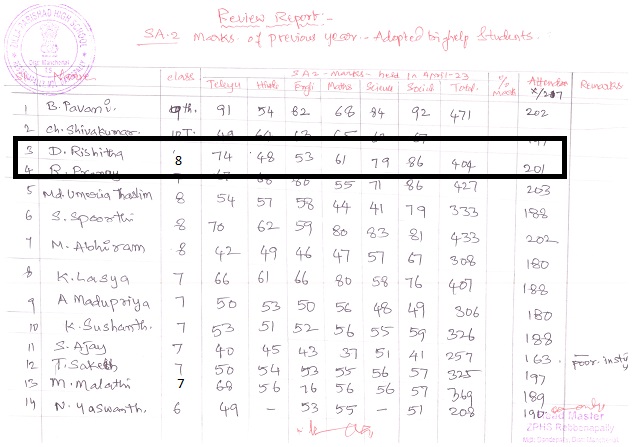 Review Report:-
SA-2 Marks of previous year - Adopted by help Students.
ZILLA PARISHAD HIGH SCHOOL
SA2 - Marks - held in April-23
Name class Telugu Hindi Engli Maths Science Social Total % Mark Attendan Remarks
1 B. Pavani. 9th. 91 54 82 68 84 92 471 202
2 ch. Shivakumar
3 D. Rishitha 8 74 48 53 61 79 86 404 201
4 80 55 71 86 427 203
5 Md. Umosia Thaslim 8 54 57 58 44 41 79 333 188
6 S. Spoorthi 8 70 62 59 80 83 81 433 202
7 M. Abhiram 8 42 49 46 47 57 67 308 180
8 K. Lasya 7 66 61 66 80 58 76 407 188
9 A Madupriya 7 50 53 50 56 48 49 306 180
10 K. Sushanth. 7 53 51 52 56 55 59 326 188
11 S. Ajay 7 40 45 43 37 51 41 257 163. poor in
12 T. Saketh 7 50 54 53 55 56 57 325 197
13 M. Malathi 7 68 56 76 56 56 57 369 189
14 N. Yaswanth. 6 49 - 53 55 - 51 208 190
Head Master
ZPHS Rebbanapally